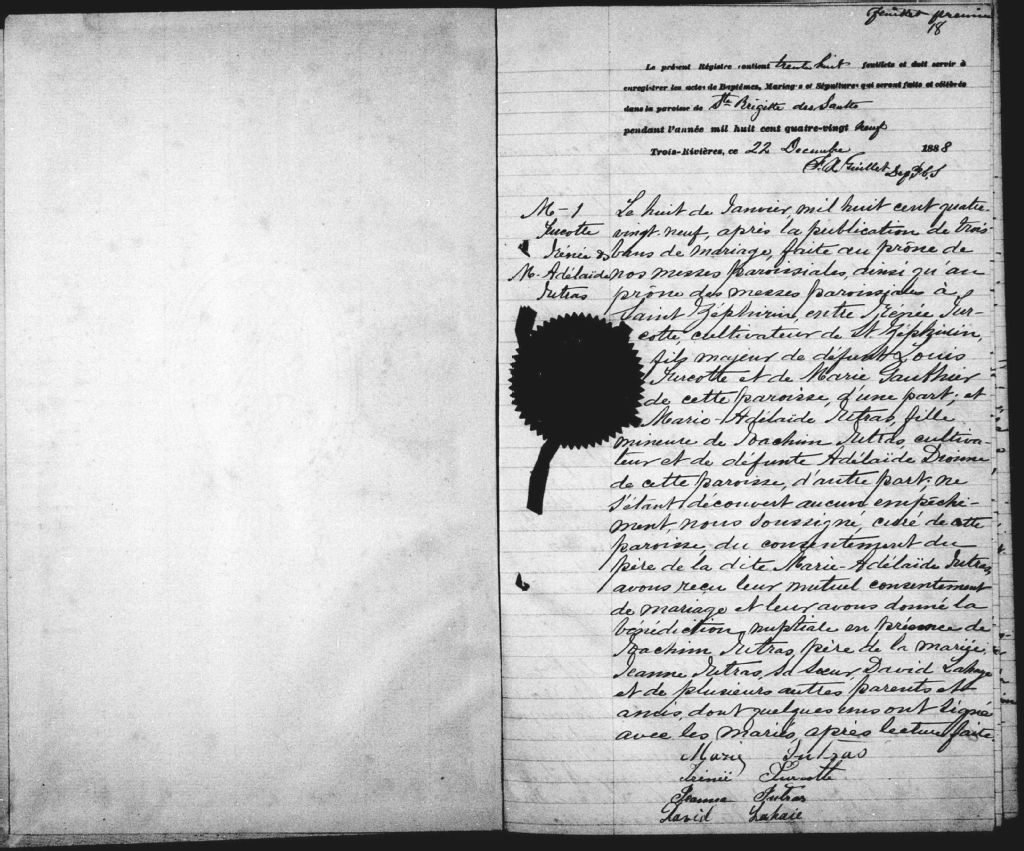 feuillet premier
18
Le présent Régistre contient trente huit feuillets et doit servir à
enregistrer les actes de Baptêmes, Mariages et Sépultures qui seront faits et célébrés
dans la paroisse de Ste Brigitte des Saults
pendant l'année mil huit cent quatre-vingt neuf
Trois-Rivières, ce 22 Decembre 1888
Guillet Dep
M-1
Turcotte
Irénée &
M. Adélaïde
Jutras
Le huit de Janvier, mil huit cent quatre-
vingt-neuf, après la publication de trois
bans de mariage, faite au prône de
nos messes paroissiales, ainsi qu'au
prône des messes paroissiales à
Saint Zéphirin, entre Irénée Tur-
cotte, cultivateur de St. Zéphirin,
fils majeur de défunt Louis
Turcotte et de Marie Gauthier
de cette paroisse, d'une part; et
Marie-Adélaïde Jutras, fille
mineure de Joachim Jutras, cultiva-
teur et de défunte Adélaïde Dionne
de cette paroisse, d'autre part; ne
s'étant découvert aucun empêche-
ment, nous soussigné, curé de cette
paroisse, du consentement du
père de la dite Marie-Adélaïde Jutras,
avons reçu leur mutuel consentement
de mariage et leur avons donné la
bénédiction nuptiale en présence de
Joachim Jutras, père de la mariée,
Jeanne Jutras, sa sœur, David Lahaye
et de plusieurs autres parents et
amis, dont quelques uns ont signé
avec les mariés, après lecture faite.
Marie Jutras
Irénée Turcotte
Jeanne Jutras
David Lahaie